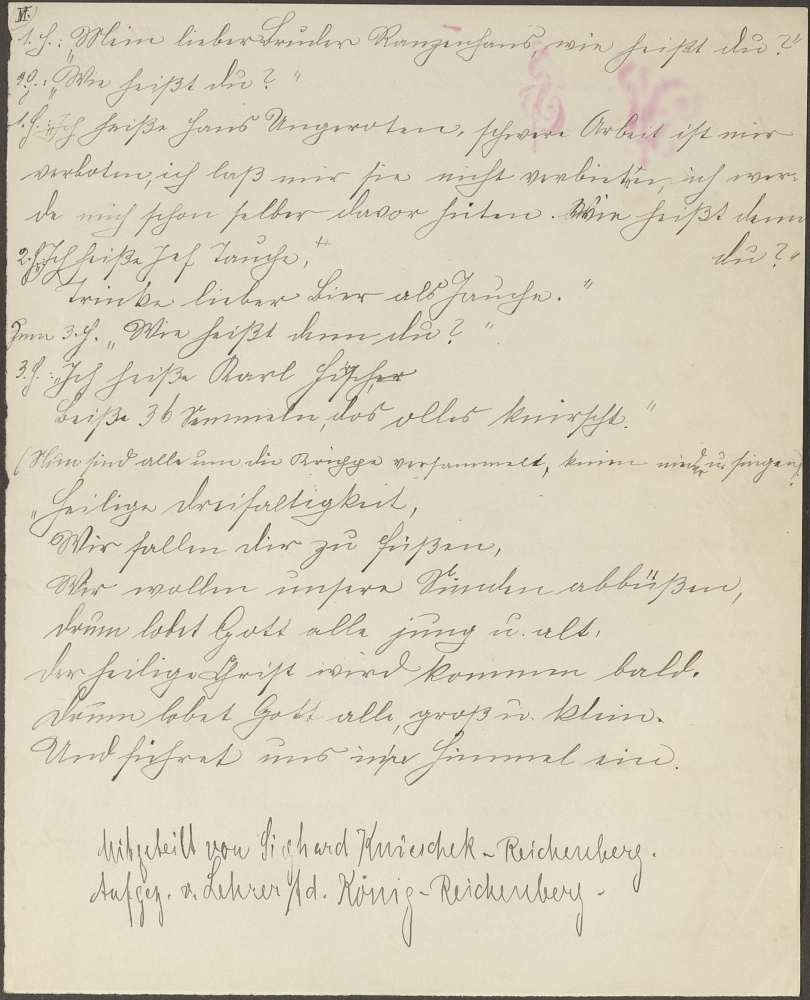 VI.
1. H.: „Mein lieber Bruder Ranzenhans, wie heißt du?"
2. H.: „Wie heißt du?"
1. H.: „Ich heiße Hans Ungeroten, schwere Arbeit ist mir
verboten, ich laß mir sie nicht verbieten, ich wer-
de mich schon selber davor hüten. Wie heißt denn
du?"
2. H. „Ich heiße Jos Tauche,
Trinke lieber Bier als Jauche."
Zum 3. H. „Wie heißt denn du?"
3. H.: „Ich heiße Karl
Beiße 36 Semmeln, das alles knirscht."
(Nun sind alle um die Krippe versammelt, knien nieder u. singen)
„Heilige Dreifaltigkeit,
Wir fallen dir zu Füßen,
Wir wollen unsere Sünden abbüßen,
Drum lobet Gott alle jung u. alt,
Der heilige Christ wird kommen bald.
Drum lobet Gott alle, groß u. klein.
Und führet uns in Himmel ein.
Mitgeteilt von Sieghard Knieschek - Reichenberg.
Aufgez. v. Lehrer Ad. König - Reichenberg -